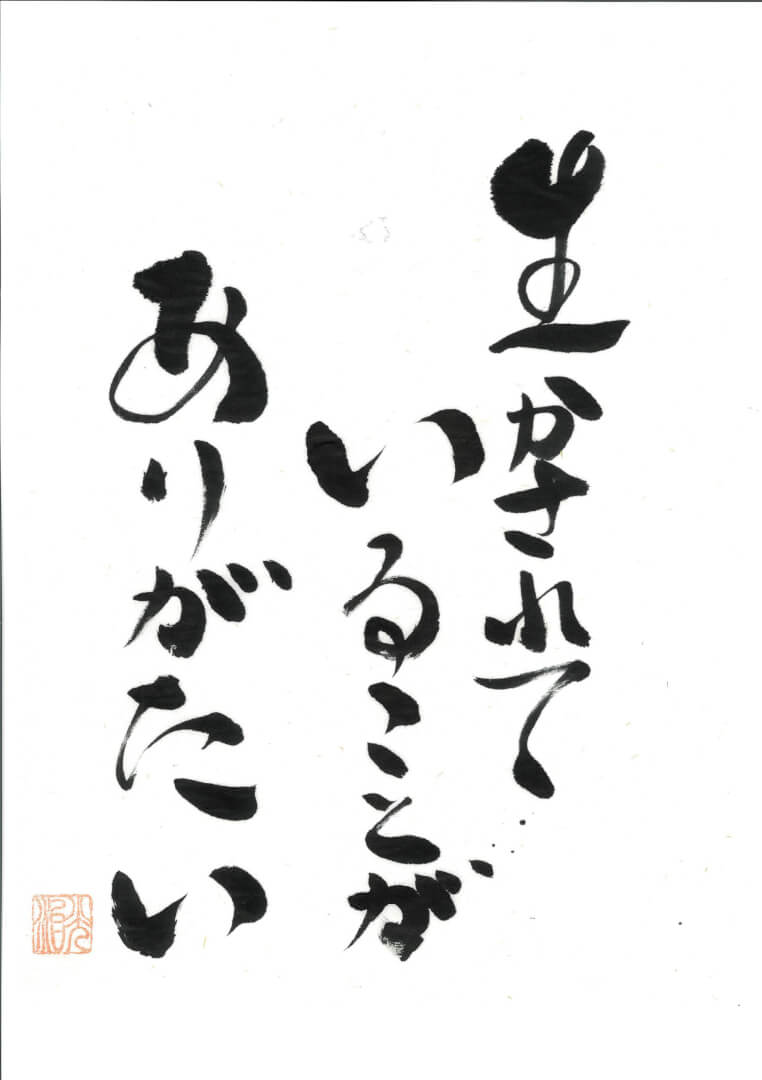 生かされて
いることが
ありがたい